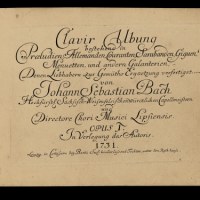 Clavir Ubung
bestehend in
Præludien, Allemanden, Couranten, Sarabanden, Giguen,
Menuetten, und andern Galanterien;
Denen Liebhabern zur Gemüths Ergoetzung verfertiget
von
Johann Sebastian Bach
Hochfürstl. Sächsisch-Weisenfelsischen würcklichen Capellmeistern
und
Directore Chori Musici Lipsiensis.
OPUS I.
In Verlegung des Autoris.
1731.